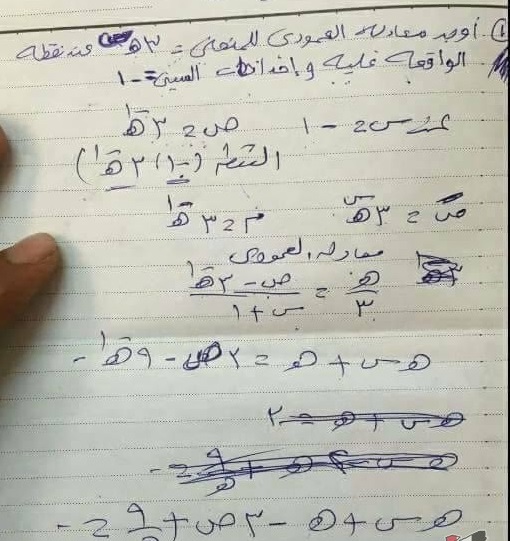 ١) أوجد معادلة العمودي للمنحنى = ٣هـ^س عند نقطة
الواقعة عليه وإحداثها السيني = -١
عند س = -١ ص = ٣هـ^-١
النقطة (-١، ٣هـ^-١)
صَ = ٣هـ^س م = ٣هـ^-١
معادلة العمودي
هـ/٣ = (ص - ٣هـ^-١)/(س + ١)
هـ س + هـ = ٣ص - ٩هـ^-١
هـ س + هـ = ٢
هـ س + هـ - ٣ص + ٩/هـ = -